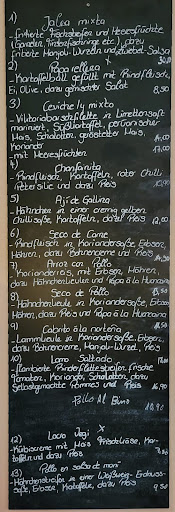 1) Jalea mixta
- Frittierte Fischstreifen und Meeresfrüchte
(Garnelen, Tintenfischringe etc.), dazu
frittierte Maniok-Wurzeln und Zwiebel-Salsa
2) Papa rellena
- Kartoffelball gefüllt mit Rindfleisch,
Ei, Olive, dazu gemischter Salat 8,50
3) Ceviche y mixto
- Viktoriabarschfilet in Limettensaft
mariniert, Süßkartoffel, peruanischer
Mais, Schalotten, gerösteter Mais,
Koriander
- mit Meeresfrüchten
4) Chanfainita
- Rindfleisch, Kartoffeln, rote Chili
Petersilie und dazu Reis
5) Ají de Gallina
- Hähnchen in einer cremig gelben
Chilisoße, Kartoffeln, dazu Reis 12,00
6) Seco de Carne
- Rindfleisch in Koriandersoße, Erbsen,
Möhren, dazu Bohnencreme und Reis
7) Arroz con Pollo
- Korianderreis, mit Erbsen, Möhren,
dazu Hähnchenkeule und Papa a la Huancaina
8) Seco de Pollo
- Hähnchenkeule in Koriandersoße, Erbsen
Möhren, dazu Reis und Papa a la Huancaina
9) Cabrito a la norteña
- Lammkeule in Koriandersoße, Erbsen,
dazu Bohnencreme, Maniok-Wurzel, Reis
10) Lomo Saltado
- flambierte Rinderfiletstreifen, frische
Tomaten, Koriander, Schalotten, dazu
Selbstgemachte Pommes und Reis 16,90
Pollo Al Horno
10,90
12) Locro Vegi
- Kürbiscreme mit Mais, Frischkäse, Kar-
toffeln und dazu Reis
13) Pollo en salsa de mani
- Hähnchenstreifen in einer Weißwein-Erdnuss-
soße, Erbsen, Kartoffeln, dazu Reis 9,50